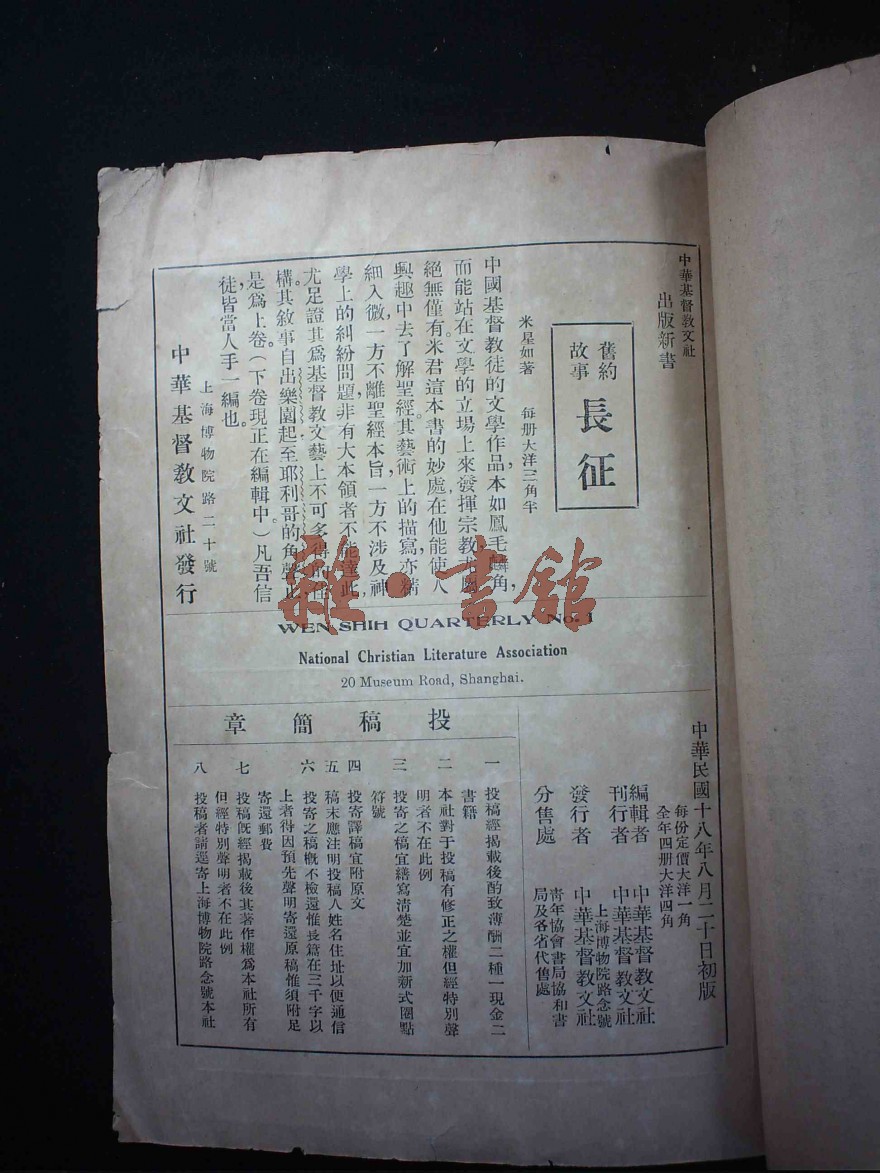 中華基督教文社
出版新書
舊約
故事
長征
米星如著　每册大洋三角半
中國基督教徒的文學作品，本如鳳毛麟角，
而能站在文學的立場上來發揮宗教尤
絕無僅有。米君這本書的妙處在他能使人
興趣中去了解聖經。其藝術上的描寫亦精
細入微，一方不離聖經本旨，一方不涉及神
學上的糾紛問題，非有大本領者不能達此，
尤足證其為基督教文藝上不可多得的佳
構。其敘事自出樂園起至耶利哥的角聲止
是為上卷。（下卷現正在編輯中。）凡吾信
徒，皆當人手一編也。
上海博物院路二十號
中華基督教文社發行
雜·書館
WEN SHIH QUARTERLY No. 1
National Christian Literature Association
20 Museum Road, Shanghai.
中華民國十八年八月二十日初版
每份定價大洋一角
全年四册大洋四角
編輯者　中華基督教文社
刊行者　中華基督教文社
上海博物院路念號
發行者　中華基督教文社
分售處　青年協會書局協和書
局及各省代售處
投稿簡章
一　投稿經揭載後酌致薄酬二種一現金二
書籍
二　本社對于投稿有修正之權但經特別聲
明者不在此例
三　投寄之稿宜繕寫清楚並宜加新式圈點
符號
四　投寄譯稿宜附原文
五　稿末應注明投稿人姓名住址以便通信
六　投寄之稿概不檢還惟長篇在三千字以
上者得因預先聲明寄還原稿惟須附足
寄還郵費
七　投稿旣經揭載後其著作權為本社所有
但經特別聲明者不在此例
八　投稿者請逕寄上海博物院路念號本社